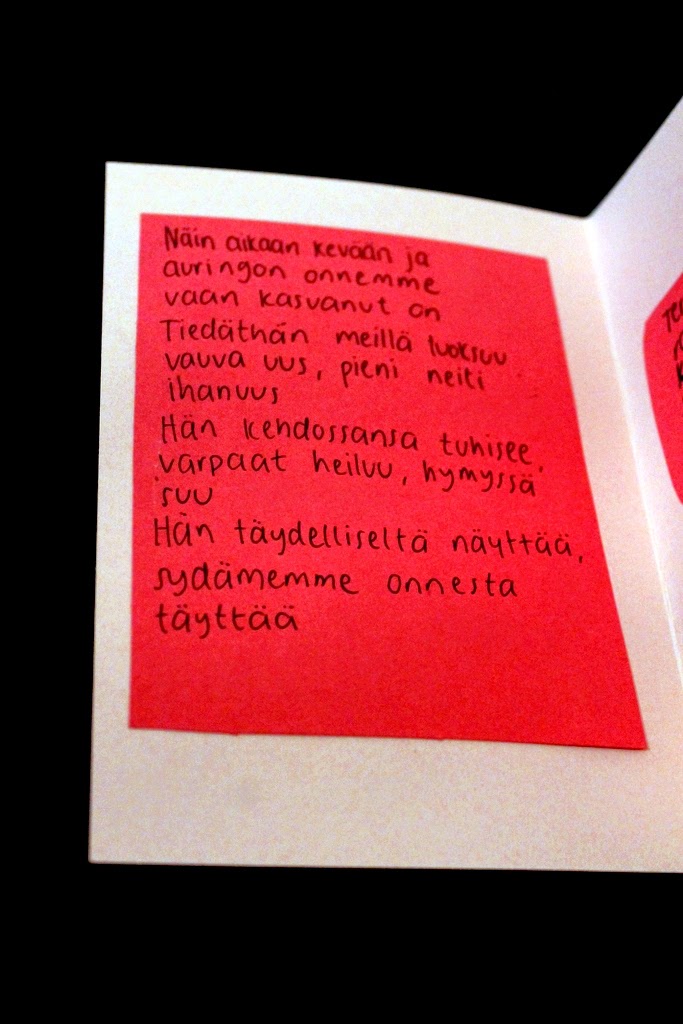 Näin aikaan kevään ja
auringon onnemme
vaan kasvanut on
Tiedäthän meillä luoksuu
vauva uus, pieni neiti
ihanuus
Hän kehdossansa tuhisee,
varpaat heiluu, hymyssä
suu
Hän täydelliseltä näyttää,
sydämemme onnesta
täyttää